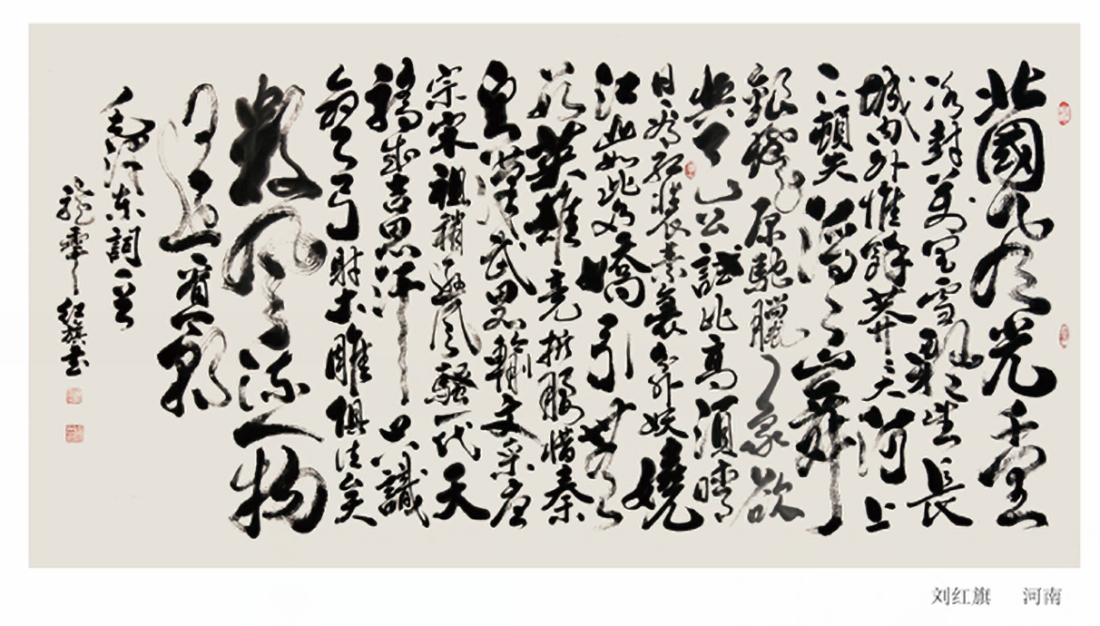 北國風光千里
冰封萬里雪飄望長
城内外惟餘莽々大河上
下頓失滔々山舞
銀蛇原馳臘象欲
與天公試比高須晴
日看紅裝素裹分外妖嬈
江山如此多嬌引無
數英雄競折腰惜秦
皇漢武略輸文采唐
宗宋祖稍遜風騷一代天
驕成吉思汗只識
彎弓射大雕俱往矣
數風流人物
還看今朝
毛澤東詞一首
紅旗書
刘红旗 河南